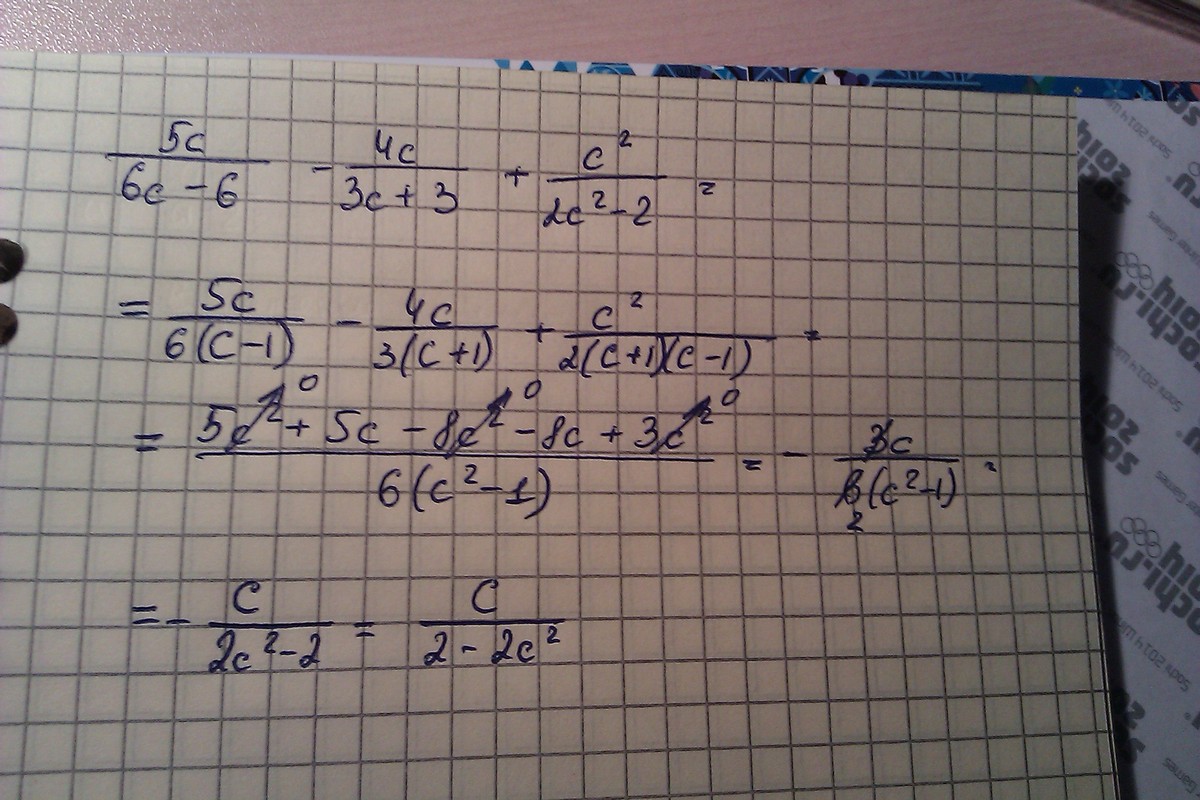 5c/(6c - 6) - 4c/(3c + 3) + c²/(2c² - 2) =
= 5c/(6(c - 1)) - 4c/(3(c + 1)) + c²/(2(c + 1)(c - 1)) =
= (5c² + 5c - 8c² - 8c + 3c²)/(6(c² - 1)) = - 3c/(6(c² - 1)) =
0 0 0
2
= - c/(2c² - 2) = c/(2 - 2c²)
sochi.ru
2014